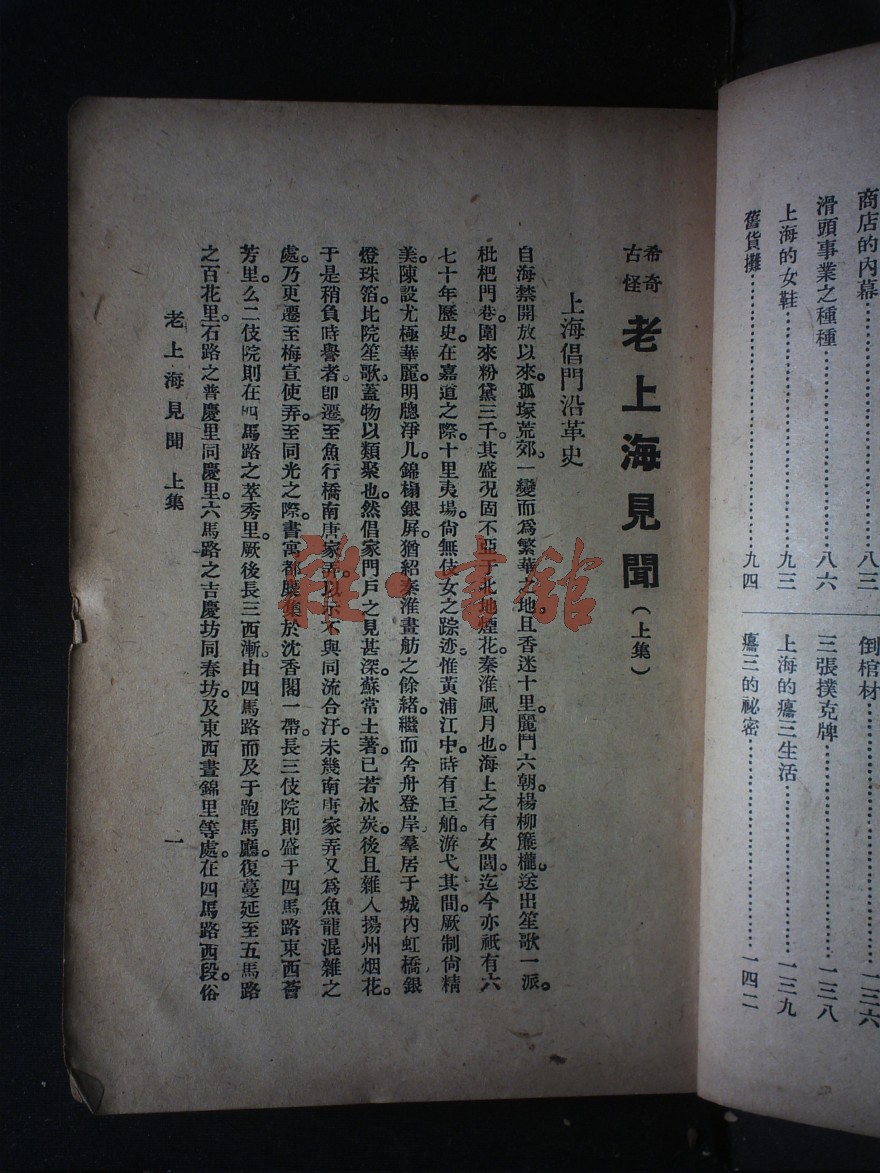 商店的內幕……八三
滑頭事業之種種……八六
上海的女鞋……九三
舊貨攤……九四
倒棺材……一三六
三張撲克牌……一三八
上海的癟三生活……一三九
癟三的祕密……一四二
希奇
古怪
老上海見聞(上集)
上海倡門沿革史
自海禁開放以來。孤塚荒郊。一變而爲繁華之地。且香迷十里。麗鬥六朝。楊柳簾櫳。送出笙歌一派。
枇杷門巷。圍來粉黛三千。其盛况固不亞于北地煙花。秦淮風月也。海上之有女閭。迄今亦祇有六
七十年歷史。在嘉道之際。十里夷場。尙無伎女之踪迹。惟黃浦江中。時有巨舶。游弋其間。厥制尙精
美。陳設尤極華麗。明牕淨几。錦榻銀屏。猶紹秦淮畫舫之餘緒。繼而舍舟登岸。羣居于城內虹橋。銀
燈珠箔。比院笙歌。蓋物以類聚也。然倡家門戶之見甚深。蘇常土著。已若冰炭。後且雜入揚州烟花。
于是稍負時譽者。卽遷至魚行橋南唐家弄。以示不與同流合汙。未幾南唐家弄又爲魚龍混雜之
處。乃更遷至梅宣使弄。至同光之際。書寓都麕集於沈香閣一帶。長三伎院則盛于四馬路東西薈
芳里。么二伎院則在四馬路之萃秀里。厥後長三西漸。由四馬路而及于跑馬廳。復蔓延至五馬路
之百花里。石路之普慶里同慶里。六馬路之吉慶坊同春坊。及東西晝錦里等處。在四馬路西段。俗
老上海見聞 上集
一
雜·書館